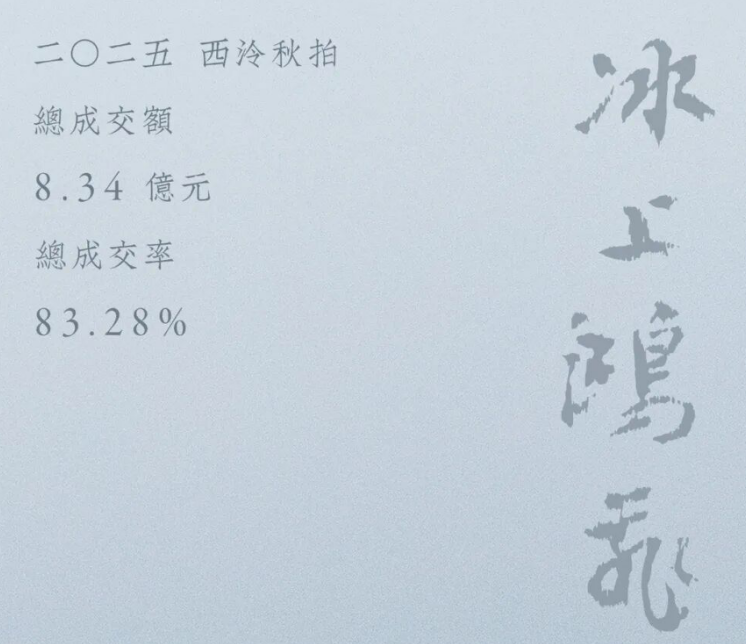 二〇二五 西泠秋拍
總成交額
8.34 億元
總成交率
83.28%
冰上鴻飛